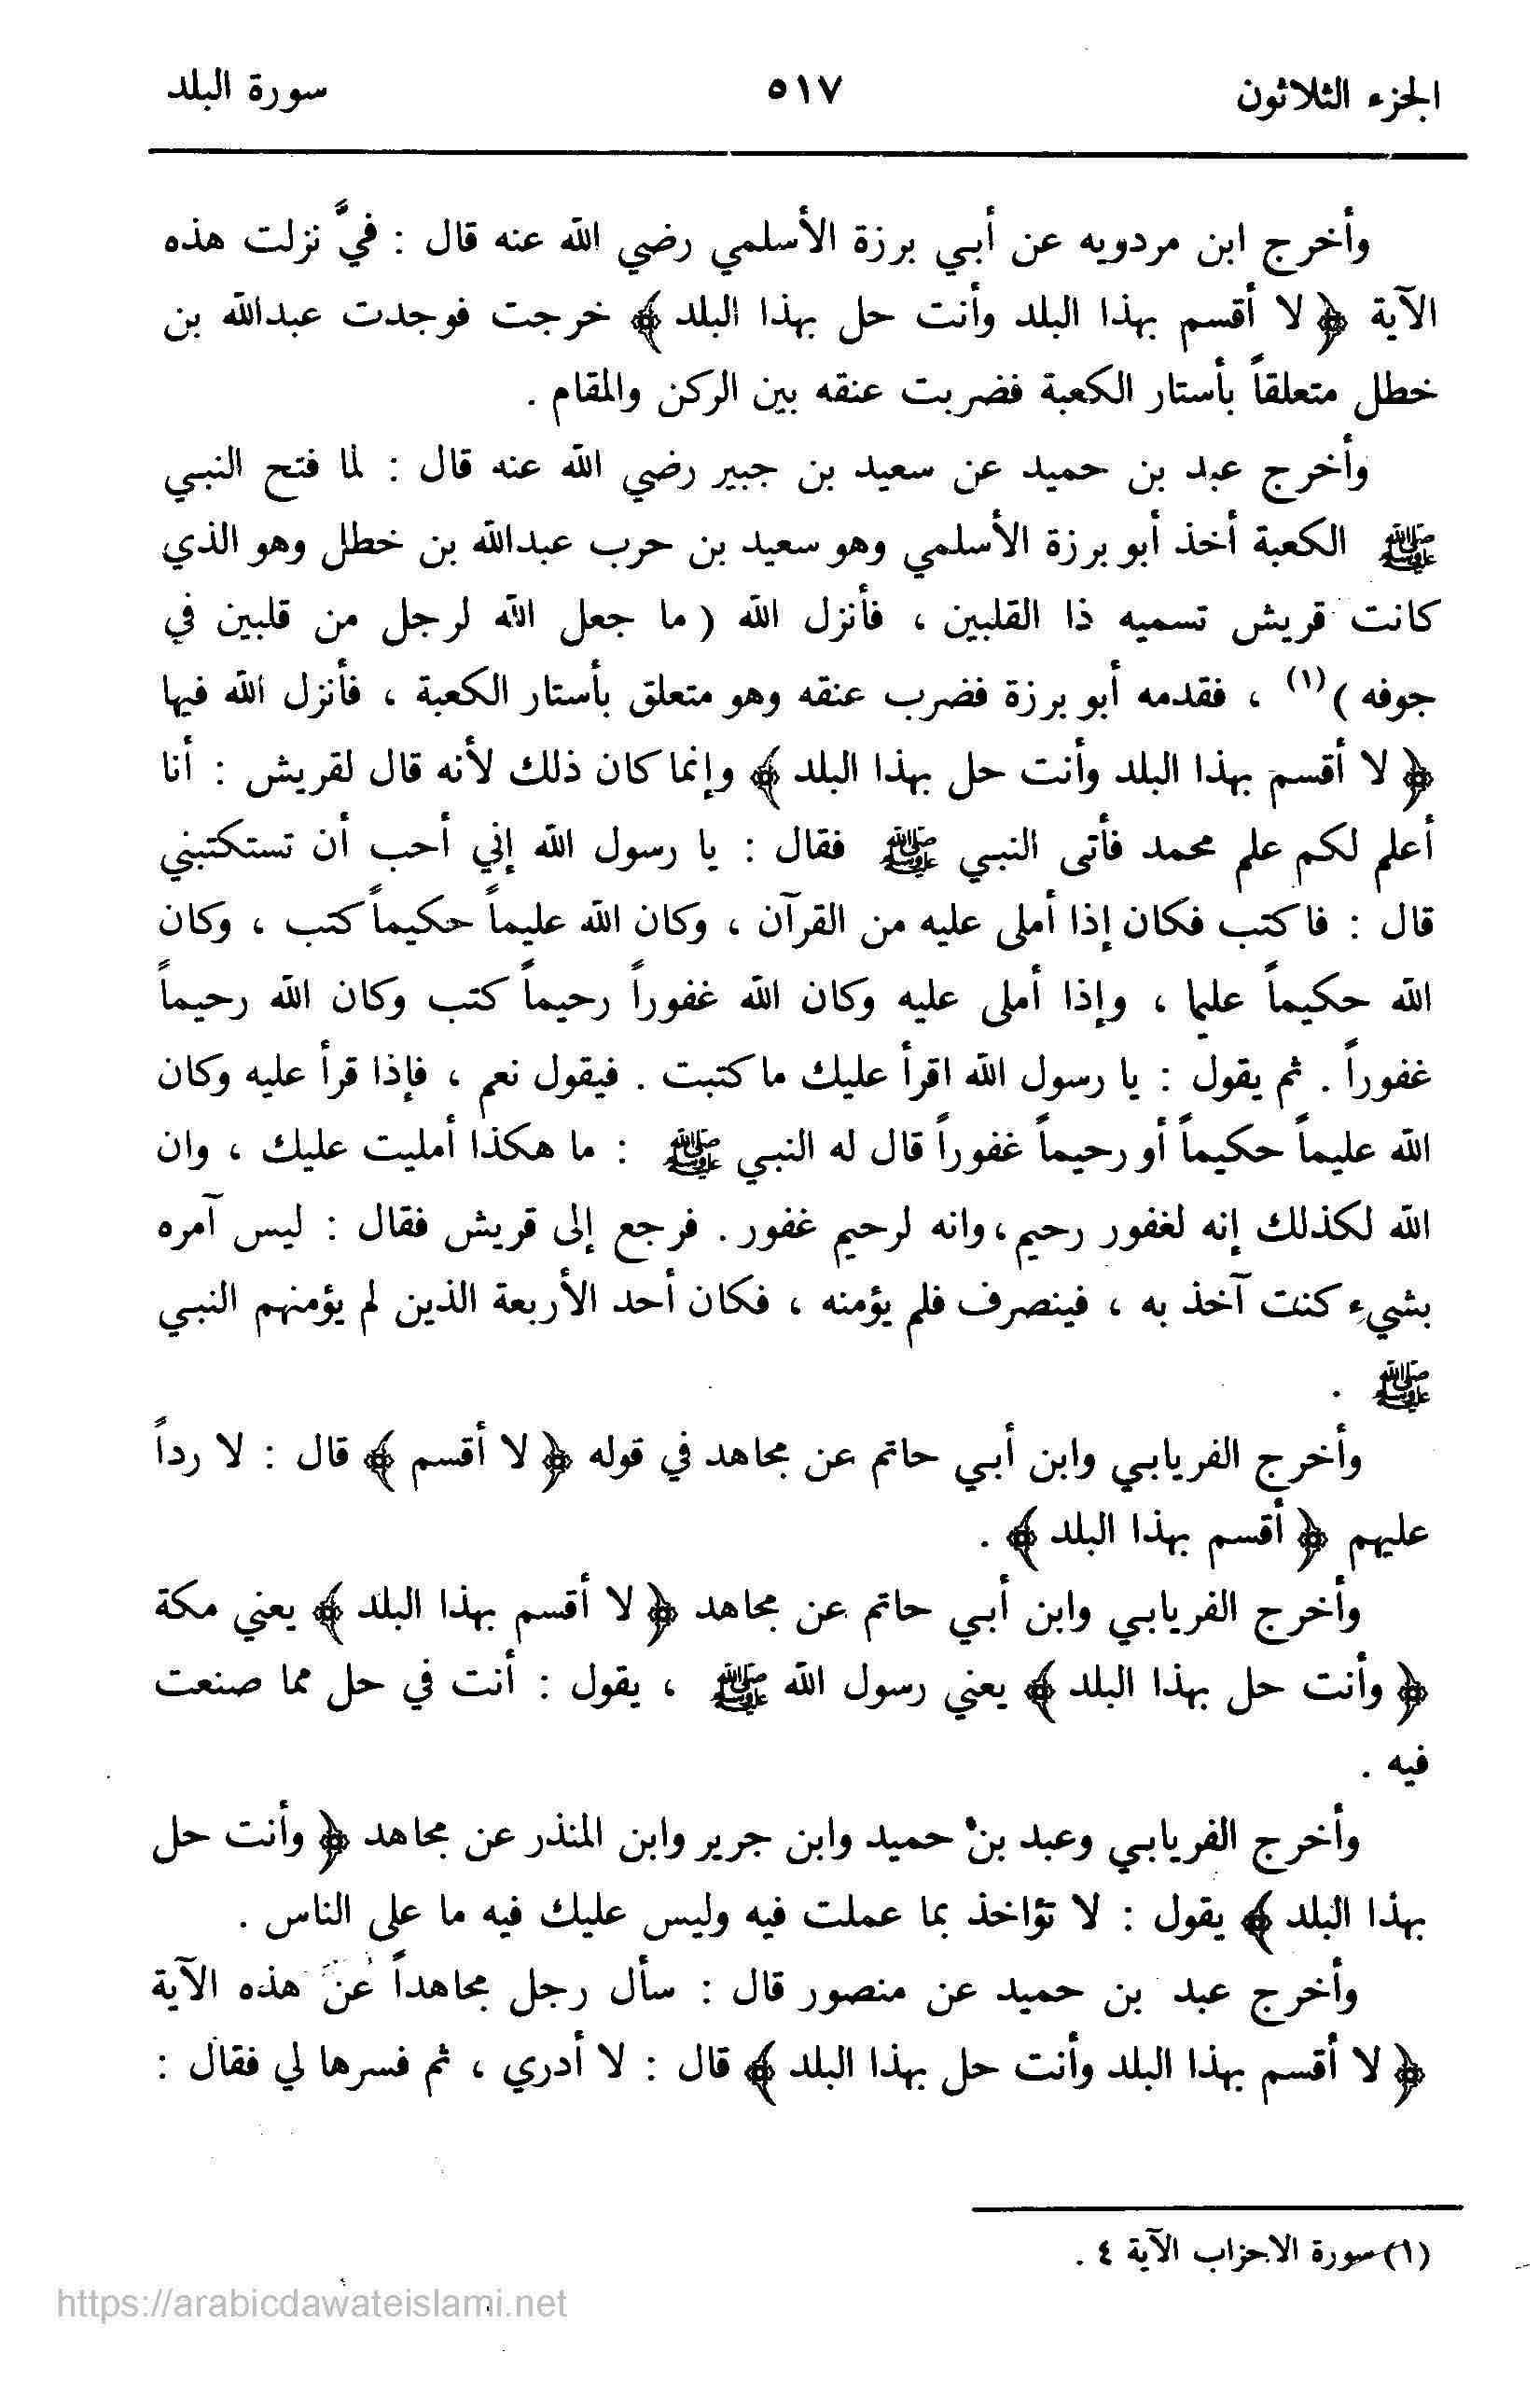 الجزء الثلاثون ٥١٧ سورة البلد
وأخرج ابن مردويه عن أبي برزة الأسلمي رضي الله عنه قال : فيَّ نزلت هذه
الآية ﴿ لا أقسم بهذا البلد وأنت حل بهذا البلد ﴾ خرجت فوجدت عبدالله بن
خطل متعلقاً بأستار الكعبة فضربت عنقه بين الركن والمقام .
وأخرج عبد بن حميد عن سعيد بن جبير رضي الله عنه قال : لما فتح النبي
ﷺ الكعبة أخذ أبو برزة الأسلمي وهو سعيد بن حرب عبدالله بن خطل وهو الذي
كانت قريش تسميه ذا القلبين ، فأنزل الله ( ما جعل الله لرجل من قلبين في
جوفه ) (١) ، فقدمه أبو برزة فضرب عنقه وهو متعلق بأستار الكعبة ، فأنزل الله فيها
﴿ لا أقسم بهذا البلد وأنت حل بهذا البلد ﴾ وإنما كان ذلك لأنه قال لقريش : أنا
أعلم لكم علم محمد فأتى النبي ﷺ فقال : يا رسول الله إني أحب أن تستكتبني
قال : فاكتب فكان إذا أملى عليه من القرآن ، وكان الله عليماً حكيماً كتب ، وكان
الله حكيماً عليما ، وإذا أملى عليه وكان الله غفوراً رحيماً كتب وكان الله رحيماً
غفوراً . ثم يقول : يا رسول الله اقرأ عليك ما كتبت . فيقول نعم ، فإذا قرأ عليه وكان
الله عليماً حكيماً أو رحيماً غفوراً قال له النبي ﷺ : ما هكذا أمليت عليك ، وان
الله لكذلك إنه لغفور رحيم ، وانه لرحيم غفور . فرجع إلى قريش فقال : ليس آمره
بشيءِ كنت آخذ به ، فينصرف فلم يؤمنه ، فكان أحد الأربعة الذين لم يؤمنهم النبي
ﷺ .
وأخرج الفريابي وابن أبي حاتم عن مجاهد في قوله ﴿ لا أقسم ﴾ قال : لا رداً
عليهم ﴿ أقسم بهذا البلد ﴾ .
وأخرج الفريابي وابن أبي حاتم عن مجاهد ﴿ لا أقسم بهذا البلد ﴾ يعني مكة
﴿ وأنت حل بهذا البلد ﴾ يعني رسول الله ﷺ ، يقول : أنت في حل مما صنعت
فيه .
وأخرج الفريابي وعبد بن حميد وابن جرير وابن المنذر عن مجاهد ﴿ وأنت حل
بهذا البلد ﴾ يقول : لا تؤاخذ بما عملت فيه وليس عليك فيه ما على الناس .
وأخرج عبد بن حميد عن منصور قال : سأل رجل مجاهداً عن هذه الآية
﴿ لا أقسم بهذا البلد وأنت حل بهذا البلد ﴾ قال : لا أدري ، ثم فسرها لي فقال :
(١) سورة الاحزاب الآية ٤ .
https://arabicdawateislami.net